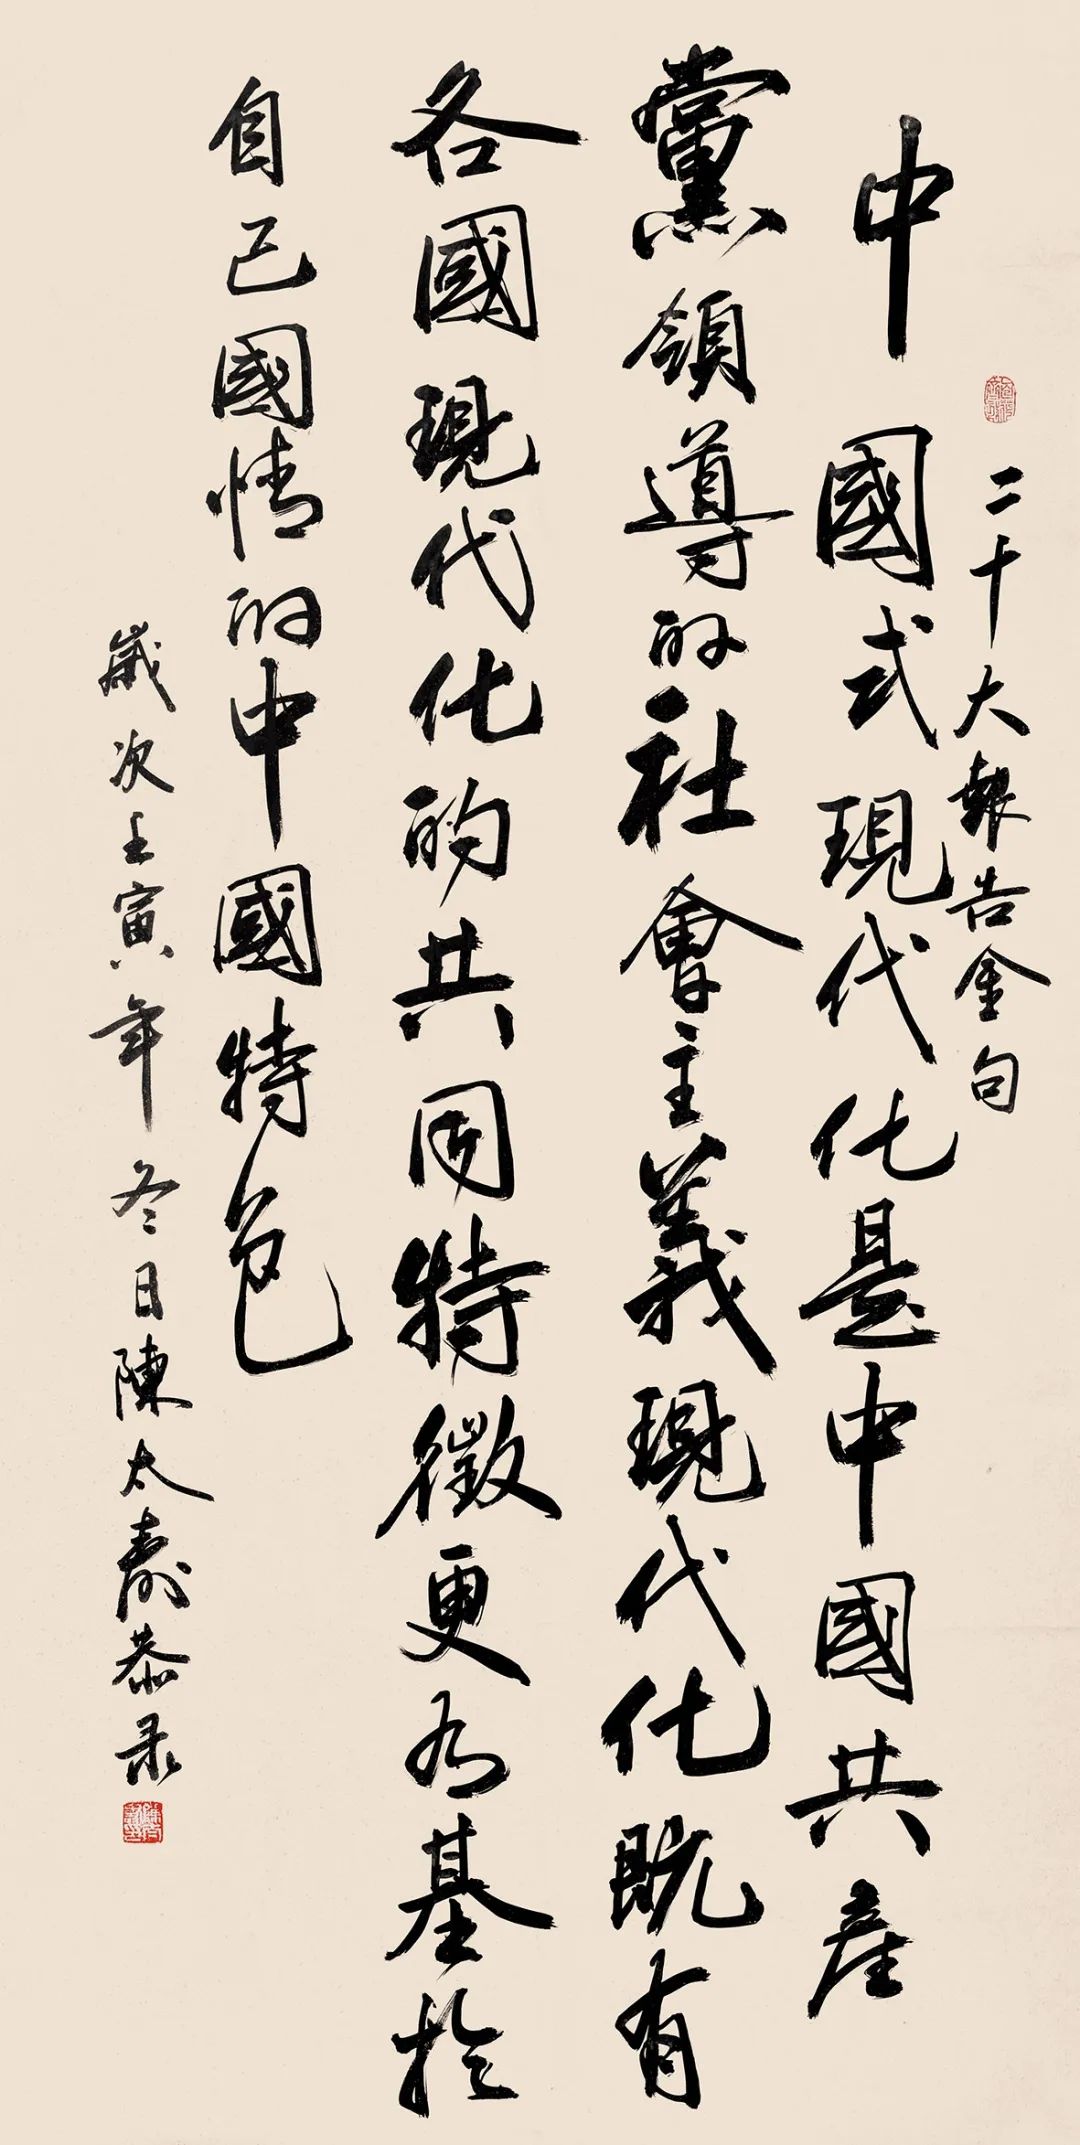 二十大報告金句
中國式現代化是中國共產
黨領導的社會主義現代化既有
各國現代化的共同特徵更有基於
自己國情的中國特色
歲次壬寅年冬日陳太壽恭录